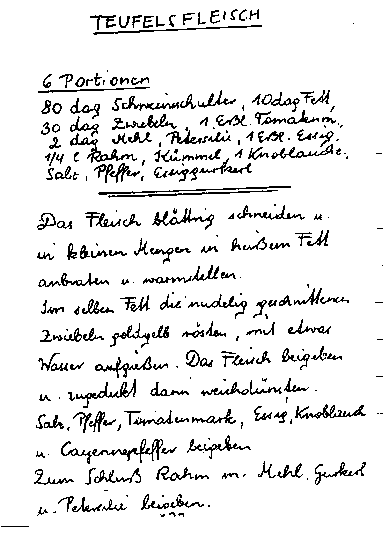 TEUFELSFLEISCH
6 Portionen
80 dag Schweinschulter, 10 dag Fett,
30 dag Zwiebeln, 1 Eßl. Tomatenm.,
2 dag Mehl, Petersilie, 1 Eßl. Essig,
1/4 l Rahm, Kümmel, 1 Knoblauchz.
Salz, Pfeffer, Essiggurkerl
Das Fleisch blättrig schneiden u.
in kleinen Mengen in heißem Fett
anbraten u. warmstellen.
Im selben Fett die nudelig geschnittenen
Zwiebeln goldgelb rösten, mit etwas
Wasser aufgießen. Das Fleisch beigeben
u. zugedeckt darin weichdünsten.
Salz, Pfeffer, Tomatenmark, Essig, Knoblauch
u. Cayennepfeffer beigeben
Zum Schluß Rahm m. Mehl, Gurkerl
u. Petersilie beigeben.